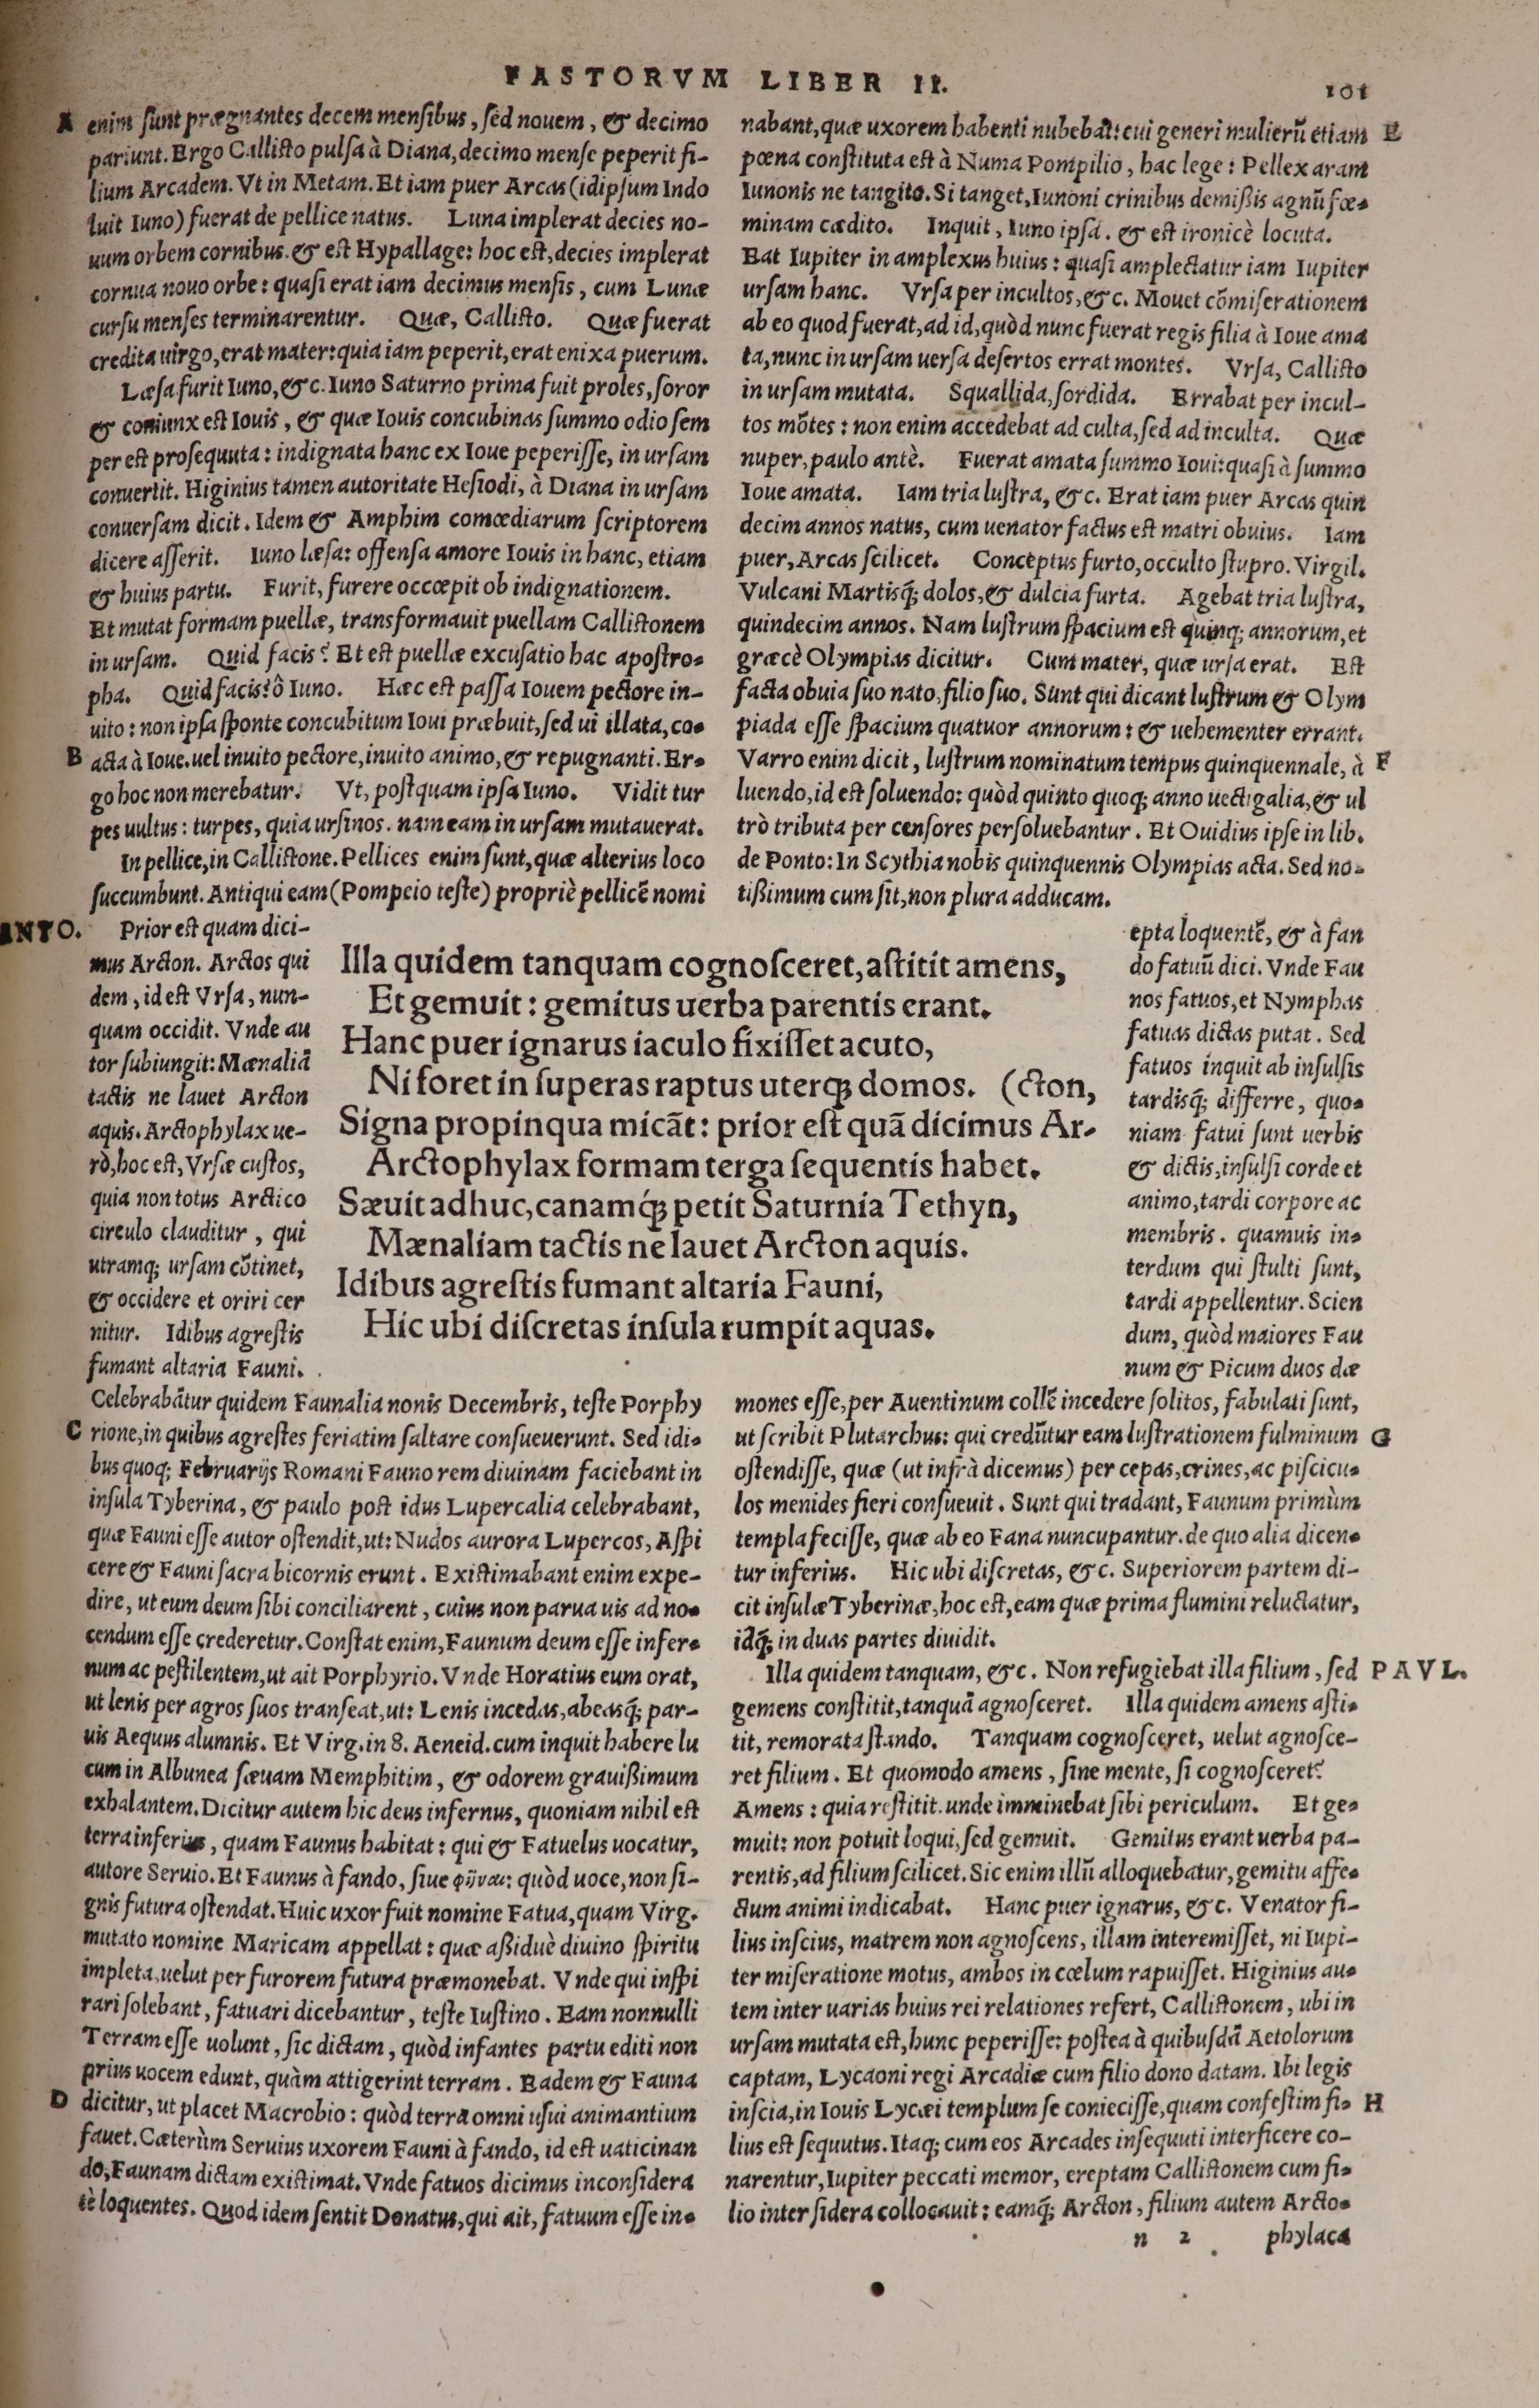 FASTORVM LIBER II. 101
A enim ſunt prægnantes decem menſibus, ſed nouem, & decimo
pariunt. Ergo Calliſto pulſa à Diana, decimo menſe peperit fi-
lium Arcadem. Vt in Metam. Et iam puer Arcas (id ipſum Indo
luit Iuno) fuerat de pellice natus. Luna implerat decies no-
uum orbem cornibus. & eſt Hypallage: hoc eſt, decies implerat
cornua nouo orbe: quaſi erat iam decimus menſis, cum Lunæ
curſu menſes terminarentur. Quæ, Calliſto. Quæ fuerat
credita uirgo, erat mater: quia iam peperit, erat enixa puerum.
Læſa furit Iuno, &c. Iuno Saturno prima fuit proles, ſoror
& coniunx eſt Iouis, & quæ Iouis concubinas ſummo odio ſem
per eſt proſequuta: indignata hanc ex Ioue peperiſſe, in urſam
conuertit. Higinius tamen autoritate Heſiodi, à Diana in urſam
conuerſam dicit. Idem & Amphim comœdiarum ſcriptorem
dicere aſſerit. Iuno læſa: offenſa amore Iouis in hanc, etiam
& huius partu. Furit, furere occœpit ob indignationem.
Et mutat formam puellæ, transformauit puellam Calliſtonem
in urſam. Quid facis? Et eſt puellæ excuſatio hac apoſtro-
pha. Quid facis? ô Iuno. Hæc eſt paſſa Iouem pectore in-
uito: non ipſa ſponte concubitum Ioui præbuit, ſed ui illata, co-
B acta à Ioue. uel inuito pectore, inuito animo, & repugnanti. Er-
go hoc non merebatur. Vt, poſtquam ipſa Iuno. Vidit tur
pes uultus: turpes, quia urſinos. nam eam in urſam mutauerat.
In pellice, in Calliſtone. Pellices enim ſunt, quæ alterius loco
ſuccumbunt. Antiqui eam (Pompeio teſte) propriè pellicē nomi
nabant, quæ uxorem habenti nubebat: cui generi mulierū etiam E
pœna conſtituta eſt à Numa Pompilio, hac lege: Pellex aram
Iunonis ne tangito. Si tanget, Iunoni crinibus demiſsis agnū fœ-
minam cædito. Inquit, Iuno ipſa. & eſt ironicè locuta.
Eat Iupiter in amplexus huius: quaſi amplectatur iam Iupiter
urſam hanc. Vrſa per incultos, &c. Mouet cōmiſerationem
ab eo quod fuerat, ad id, quòd nunc fuerat regis filia à Ioue ama
ta, nunc in urſam uerſa deſertos errat montes. Vrſa, Calliſto
in urſam mutata. Squallida, ſordida. Errabat per incul-
tos mōtes: non enim accedebat ad culta, ſed ad inculta. Quæ
nuper, paulo antè. Fuerat amata ſummo Ioui: quaſi à ſummo
Ioue amata. Iam tria luſtra, &c. Erat iam puer Arcas quin
decim annos natus, cum uenator factus eſt matri obuius. Iam
puer, Arcas ſcilicet. Conceptus furto, occulto ſtupro. Virgil.
Vulcani Martisq; dolos, & dulcia furta. Agebat tria luſtra,
quindecim annos. Nam luſtrum ſpacium eſt quinq; annorum, et
græcè Olympias dicitur. Cum mater, quæ urſa erat. Eſt
facta obuia ſuo nato, filio ſuo. Sunt qui dicant luſtrum & Olym
piada eſſe ſpacium quatuor annorum: & uehementer errant.
Varro enim dicit, luſtrum nominatum tempus quinquennale, à F
luendo, id eſt ſoluendo: quòd quinto quoq; anno uectigalia, & ul
trò tributa per cenſores perſoluebantur. Et Ouidius ipſe in lib.
de Ponto: In Scythia nobis quinquennis Olympias acta. Sed no-
tiſsimum cum ſit, non plura adducam.
ANTO. Prior eſt quam dici-
mus Arcton. Arctos qui
dem, id eſt Vrſa, nun-
quam occidit. Vnde au
tor ſubiungit: Mænaliā
tactis ne lauet Arcton
aquis. Arctophylax ue-
rò, hoc eſt, Vrſæ cuſtos,
quia non totus Arctico
circulo clauditur, qui
utramq; urſam cōtinet,
& occidere et oriri cer
nitur. Idibus agreſtis
fumant altaria Fauni.
Illa quidem tanquam cognoſceret, aſtitit amens,
Et gemuit: gemitus uerba parentis erant.
Hanc puer ignarus iaculo fixiſſet acuto,
Ni foret in ſuperas raptus uterq; domos. (cton,
Signa propinqua micāt: prior eſt quā dicimus Ar-
Arctophylax formam terga ſequentis habet.
Sæuit adhuc, canamq́; petit Saturnia Tethyn,
Mænaliam tactis ne lauet Arcton aquis.
Idibus agreſtis fumant altaria Fauni,
Hic ubi diſcretas inſula rumpit aquas.
epta loquentē, & à fan
do fatuū dici. Vnde Fau
nos fatuos, et Nymphas
fatuas dictas putat. Sed
fatuos inquit ab inſulſis
tardisq́; differre, quo-
niam fatui ſunt uerbis
& dictis, inſulſi corde et
animo, tardi corpore ac
membris. quamuis in-
terdum qui ſtulti ſunt,
tardi appellentur. Scien
dum, quòd maiores Fau
num & Picum duos dæ
Celebrabātur quidem Faunalia nonis Decembris, teſte Porphy
C rione, in quibus agreſtes feriatim ſaltare conſueuerunt. Sed idi-
bus quoq; Februarijs Romani Fauno rem diuinam faciebant in
inſula Tyberina, & paulo poſt idus Lupercalia celebrabant,
quæ Fauni eſſe autor oſtendit, ut: Nudos aurora Lupercos, Aſpi
cere & Fauni ſacra bicornis erunt. Exiſtimabant enim expe-
dire, ut eum deum ſibi conciliarent, cuius non parua uis ad no-
cendum eſſe crederetur. Conſtat enim, Faunum deum eſſe infer-
num ac peſtilentem, ut ait Porphyrio. Vnde Horatius eum orat,
ut lenis per agros ſuos tranſeat, ut: Lenis incedas, abeasq́; par-
uis Aequus alumnis. Et Virg. in 8. Aeneid. cum inquit habere lu
cum in Albunea ſæuam Memphitim, & odorem grauiſsimum
exhalantem. Dicitur autem hic deus infernus, quoniam nihil eſt
terra inferius, quam Faunus habitat: qui & Fatuelus uocatur,
autore Seruio. Et Faunus à fando, ſiue φῆναι: quòd uoce, non ſi-
gnis futura oſtendat. Huic uxor fuit nomine Fatua, quam Virg.
mutato nomine Maricam appellat: quæ aſsiduè diuino ſpiritu
impleta, uelut per furorem futura præmonebat. Vnde qui inſpi
rari ſolebant, fatuari dicebantur, teſte Iuſtino. Eam nonnulli
Terram eſſe uolunt, ſic dictam, quòd infantes partu editi non
prius uocem edunt, quàm attigerint terram. Eadem & Fauna
D dicitur, ut placet Macrobio: quòd terra omni uſui animantium
fauet. Cæterùm Seruius uxorem Fauni à fando, id eſt uaticinan
do, Faunam dictam exiſtimat. Vnde fatuos dicimus inconſidera
tè loquentes. Quod idem ſentit Donatus, qui ait, fatuum eſſe in-
mones eſſe, per Auentinum collē incedere ſolitos, fabulati ſunt,
ut ſcribit Plutarchus: qui credūtur eam luſtrationem fulminum G
oſtendiſſe, quæ (ut infrà dicemus) per cepas, crines, ac piſcicu-
los menides fieri conſueuit. Sunt qui tradant, Faunum primùm
templa feciſſe, quæ ab eo Fana nuncupantur. de quo alia dicen-
tur inferius. Hic ubi diſcretas, &c. Superiorem partem di-
cit inſulæ Tyberinæ, hoc eſt, eam quæ prima flumini reluctatur,
idq́; in duas partes diuidit.
Illa quidem tanquam, &c. Non refugiebat illa filium, ſed PAVL.
gemens conſtitit, tanquā agnoſceret. Illa quidem amens aſti-
tit, remorata ſtando. Tanquam cognoſceret, uelut agnoſce-
ret filium. Et quomodo amens, ſine mente, ſi cognoſceret?
Amens: quia reſtitit. unde imminebat ſibi periculum. Et ge-
muit: non potuit loqui, ſed gemuit. Gemitus erant uerba pa-
rentis, ad filium ſcilicet. Sic enim illū alloquebatur, gemitu affe-
ctum animi indicabat. Hanc puer ignarus, &c. Venator fi-
lius inſcius, matrem non agnoſcens, illam interemiſſet, ni Iupi-
ter miſeratione motus, ambos in cœlum rapuiſſet. Higinius au-
tem inter uarias huius rei relationes refert, Calliſtonem, ubi in
urſam mutata eſt, hunc peperiſſe: poſtea à quibuſdā Aetolorum
captam, Lycaoni regi Arcadiæ cum filio dono datam. Ibi legis
inſcia, in Iouis Lycæi templum ſe conieciſſe, quam confeſtim fi- H
lius eſt ſequutus. Itaq; cum eos Arcades inſequuti interficere co-
narentur, Iupiter peccati memor, ereptam Calliſtonem cum fi-
lio inter ſidera collocauit: eamq́; Arcton, filium autem Arcto-
n 2 phylaca